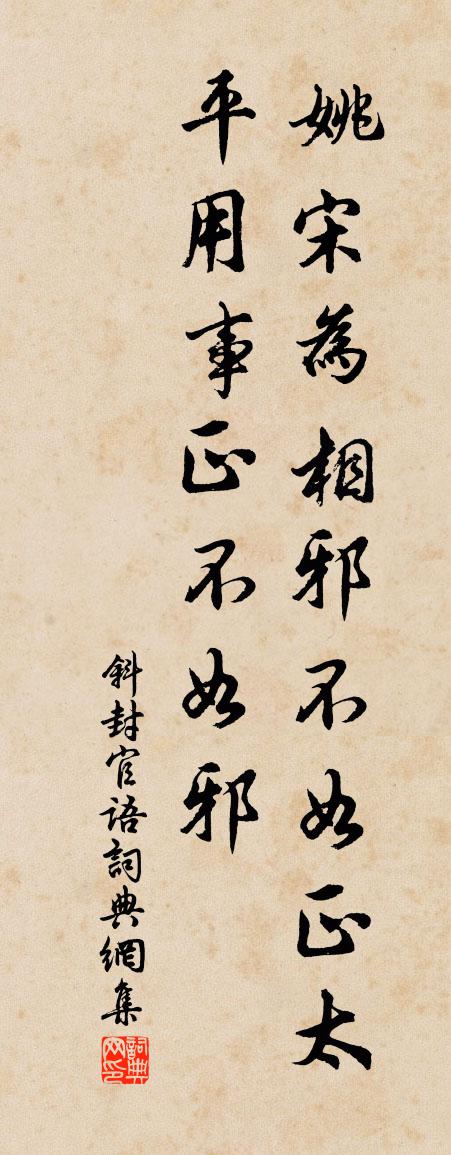 姚宋為相邪不如正太
平用事正不如邪
斜封官語詞典網集
詞典
网印